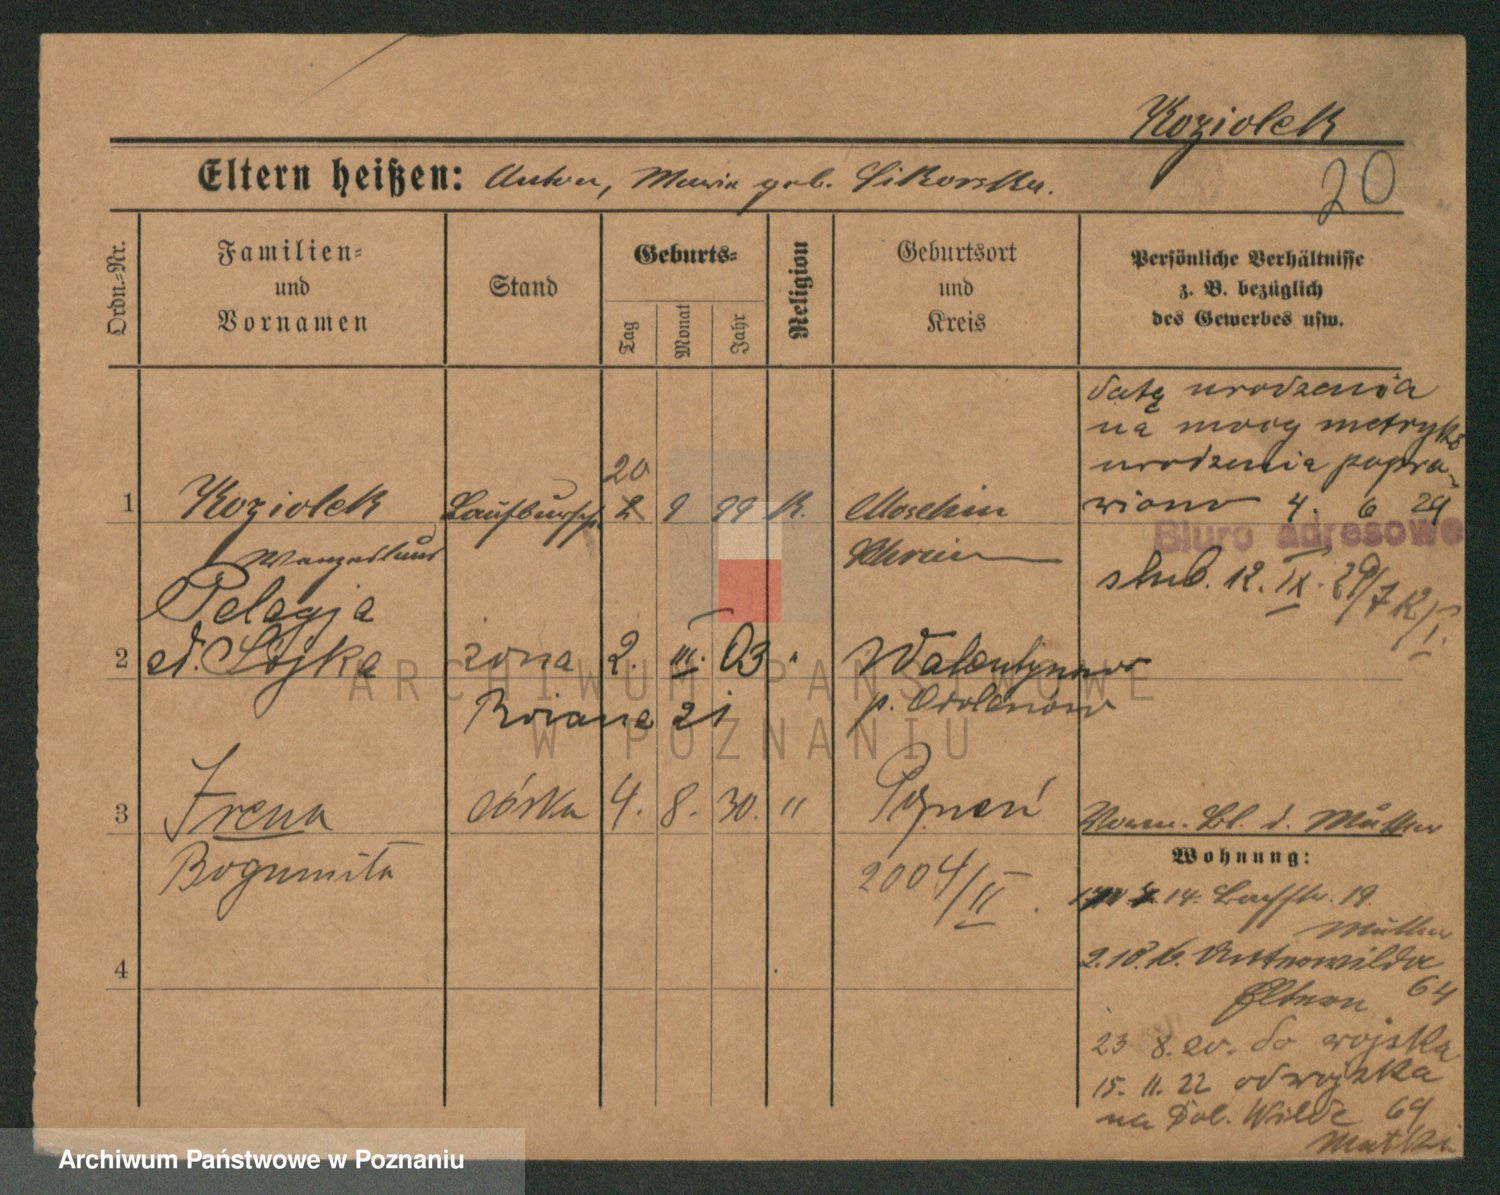 Koziolek
20
Eltern heißen: Anton, Maria geb. Sikorska.
Ordn.-Nr.
Familien= und Vornamen
Stand
Geburts=
Tag
Monat
Jahr
Religion
Geburtsort und Kreis
Persönliche Verhältnisse
z. B. bezüglich
des Gewerbes usw.
datę urodzenia
na mocy metryki
urodzenia popra-
wiono 4. 6 29
Biuro adresowe
ślub. 12. IX. 29/7 12/I.
20
1 Koziolek Laufbursch. 2 9 99 K. Moschin
Schrimm
Pelagja
2 d. Sójka żona 2. III. 03 " Walentynowo
21 p.
3 Irena córka 4. 8. 30. " Poznań
Bogumiła 2004/II.
4
Wohnung:
14. 19.
Müller
2.10.16. Unterwilda
Eltern 64
23 8. 20. do wojska
15. 11. 22 od wojska
na Dol. Wilde 64
Matki
ARCHIWUM PAŃSTWOWE
W POZNANIU
Archiwum Państwowe w Poznaniu